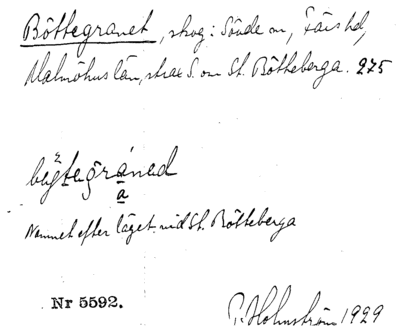 Böttegranet, skog: Sövde sn, Färs hd,
Malmöhus län, strax S. om St. Bötteberga. 275
Namnet efter läget vid St. Bötteberga
Nr 5592.
P. Holmström 1929